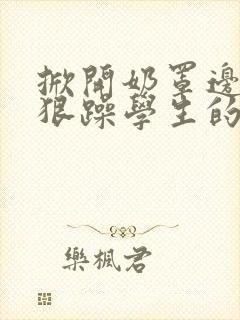 掀開奶罩邊
狠躁學生的
樂楓君